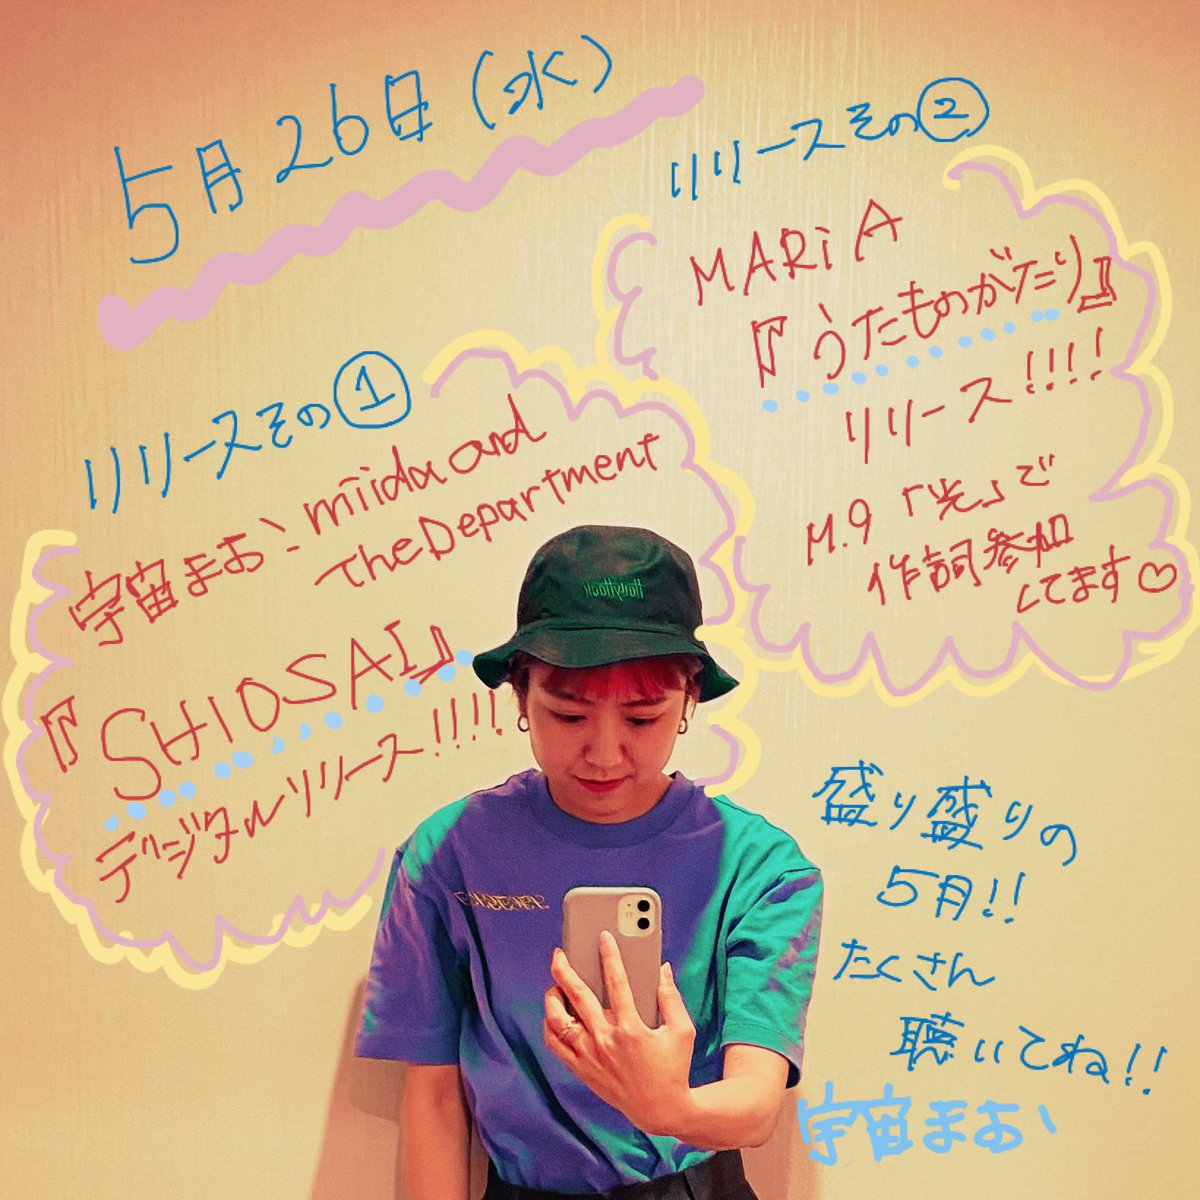 5月26日(水)
リリースその①
宇宙まお、miida and
The Department
『SHIOSAI』
デジタルリリース!!!!
リリースその②
MARiA
『うたものがたり』
リリース!!!!
M.9「光」で
作詞参加
してます♡
盛り盛りの
5月!!
たくさん
聴いてね!!
宇宙まお